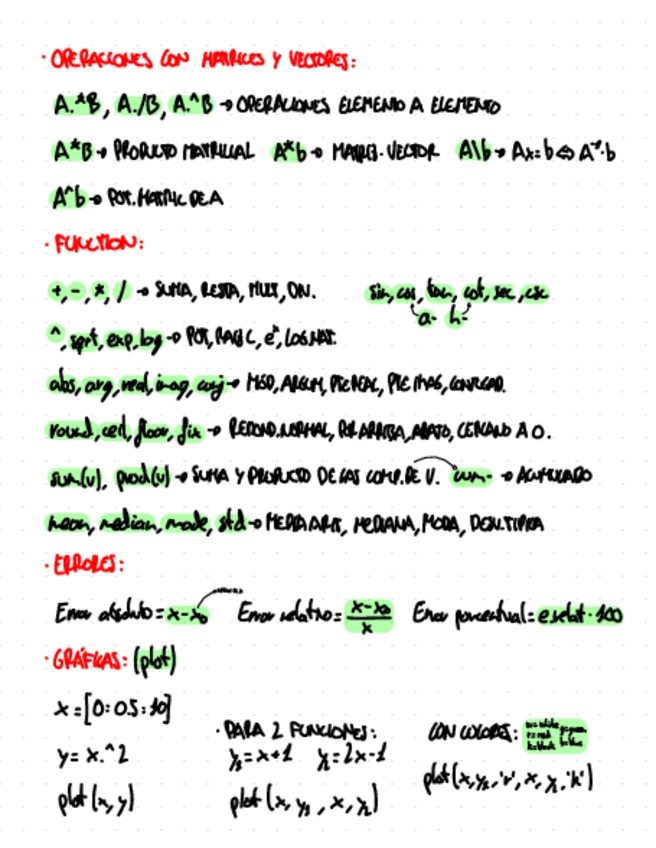 · OPERACIONES CON MATRICES Y VECTORES:
A.*B, A./B, A.^B → OPERACIONES ELEMENTO A ELEMENTO
A*B → PRODUCTO MATRICIAL A*b → MATRIZ-VECTOR A\b → Ax=b ⇔ A⁻¹·b
A^b → POT. MATRIC DE A
· FUNCTION:
+, -, *, / → SUMA, RESTA, MULT, DIV. sin, cos, tan, cot, sec, csc
a- h-
^, sqrt, exp, log → POT, RAÍZ C, eˣ, LOG NAT.
abs, arg, real, imag, conj → MOD, ARGUM, PTE REAL, PTE IMAG, CONJUGAD.
round, ceil, floor, fix → REDOND. NORMAL, POR ARRIBA, ABAJO, CERCANO A 0.
sum(v), prod(v) → SUMA Y PRODUCTO DE LAS COMP. DE V. cum- → ACUMULADO
mean, median, mode, std → MEDIA ARIT, MEDIANA, MODA, DESV. TIPICA
· ERRORES:
Error absoluto = x-x₀ Error relativo = (x-x₀)/x Error porcentual = e.relat · 100
· GRÁFICAS: (plot)
x = [0:0.5:10]
· PARA 2 FUNCIONES: CON COLORES: w=white g=green r=red k=black b=blue
y = x.^2 y₁=x+1 y₂=2x-1
plot(x,y) plot(x, y₁, x, y₂) plot(x,y₁,'r', x, y₂,'k')